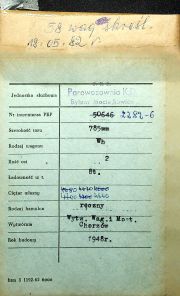 58 wag skreśl.
18.05.82 r
Parowozownia K.D.
Jednostka służbowa
Nr inwentarza PKP 50646 2282-6
Szerokość toru 785mm
Rodzaj wagonu Wh
Ilość osi 2
Ładowność w t. 8t.
Ciężar własny
Rodzaj hamulca ręczny
Wytwórnia Wytw. Wag. i Mo-t. Chorzów
Rok budowy 1948r.